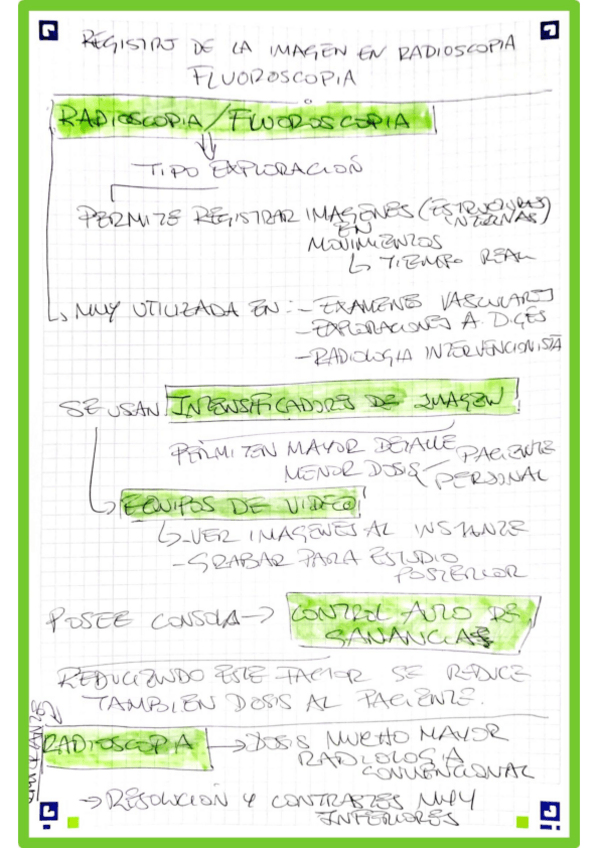 REGISTRO DE LA IMAGEN EN RADIOSCOPIA
FLUOROSCOPIA
RADIOSCOPIA/FLUOROSCOPIA
TIPO EXPLORACIÓN
PERMITE REGISTRAR IMAGENES (ESTRUCTURAS INTERNAS)
EN
MOVIMIENTOS
↳ TIEMPO REAL
↳ MUY UTILIZADA EN: - EXAMENES VASCULARES
- EXPLORACIONES A. DIGES
- RADIOLOGIA INTERVENCIONISTA
SE USAN INTENSIFICADORES DE IMAGEN
PERMITEN MAYOR DETALLE
MENOR DOSIS PACIENTE
PERSONAL
↳ EQUIPOS DE VIDEO
↳ - VER IMAGENES AL INSTANTE
- GRABAR PARA ESTUDIO
POSTERIOR
POSEE CONSOLA → CONTROL AUTO DE
GANANCIAS
REDUCIENDO ESTE FACTOR SE REDUCE
TAMBIEN DOSIS AL PACIENTE.
RADIOSCOPIA → DOSIS MUCHO MAYOR
RADIOLOGIA
CONVENCIONAL
→ RESOLUCION Y CONTRASTES MUY
INFERIORES